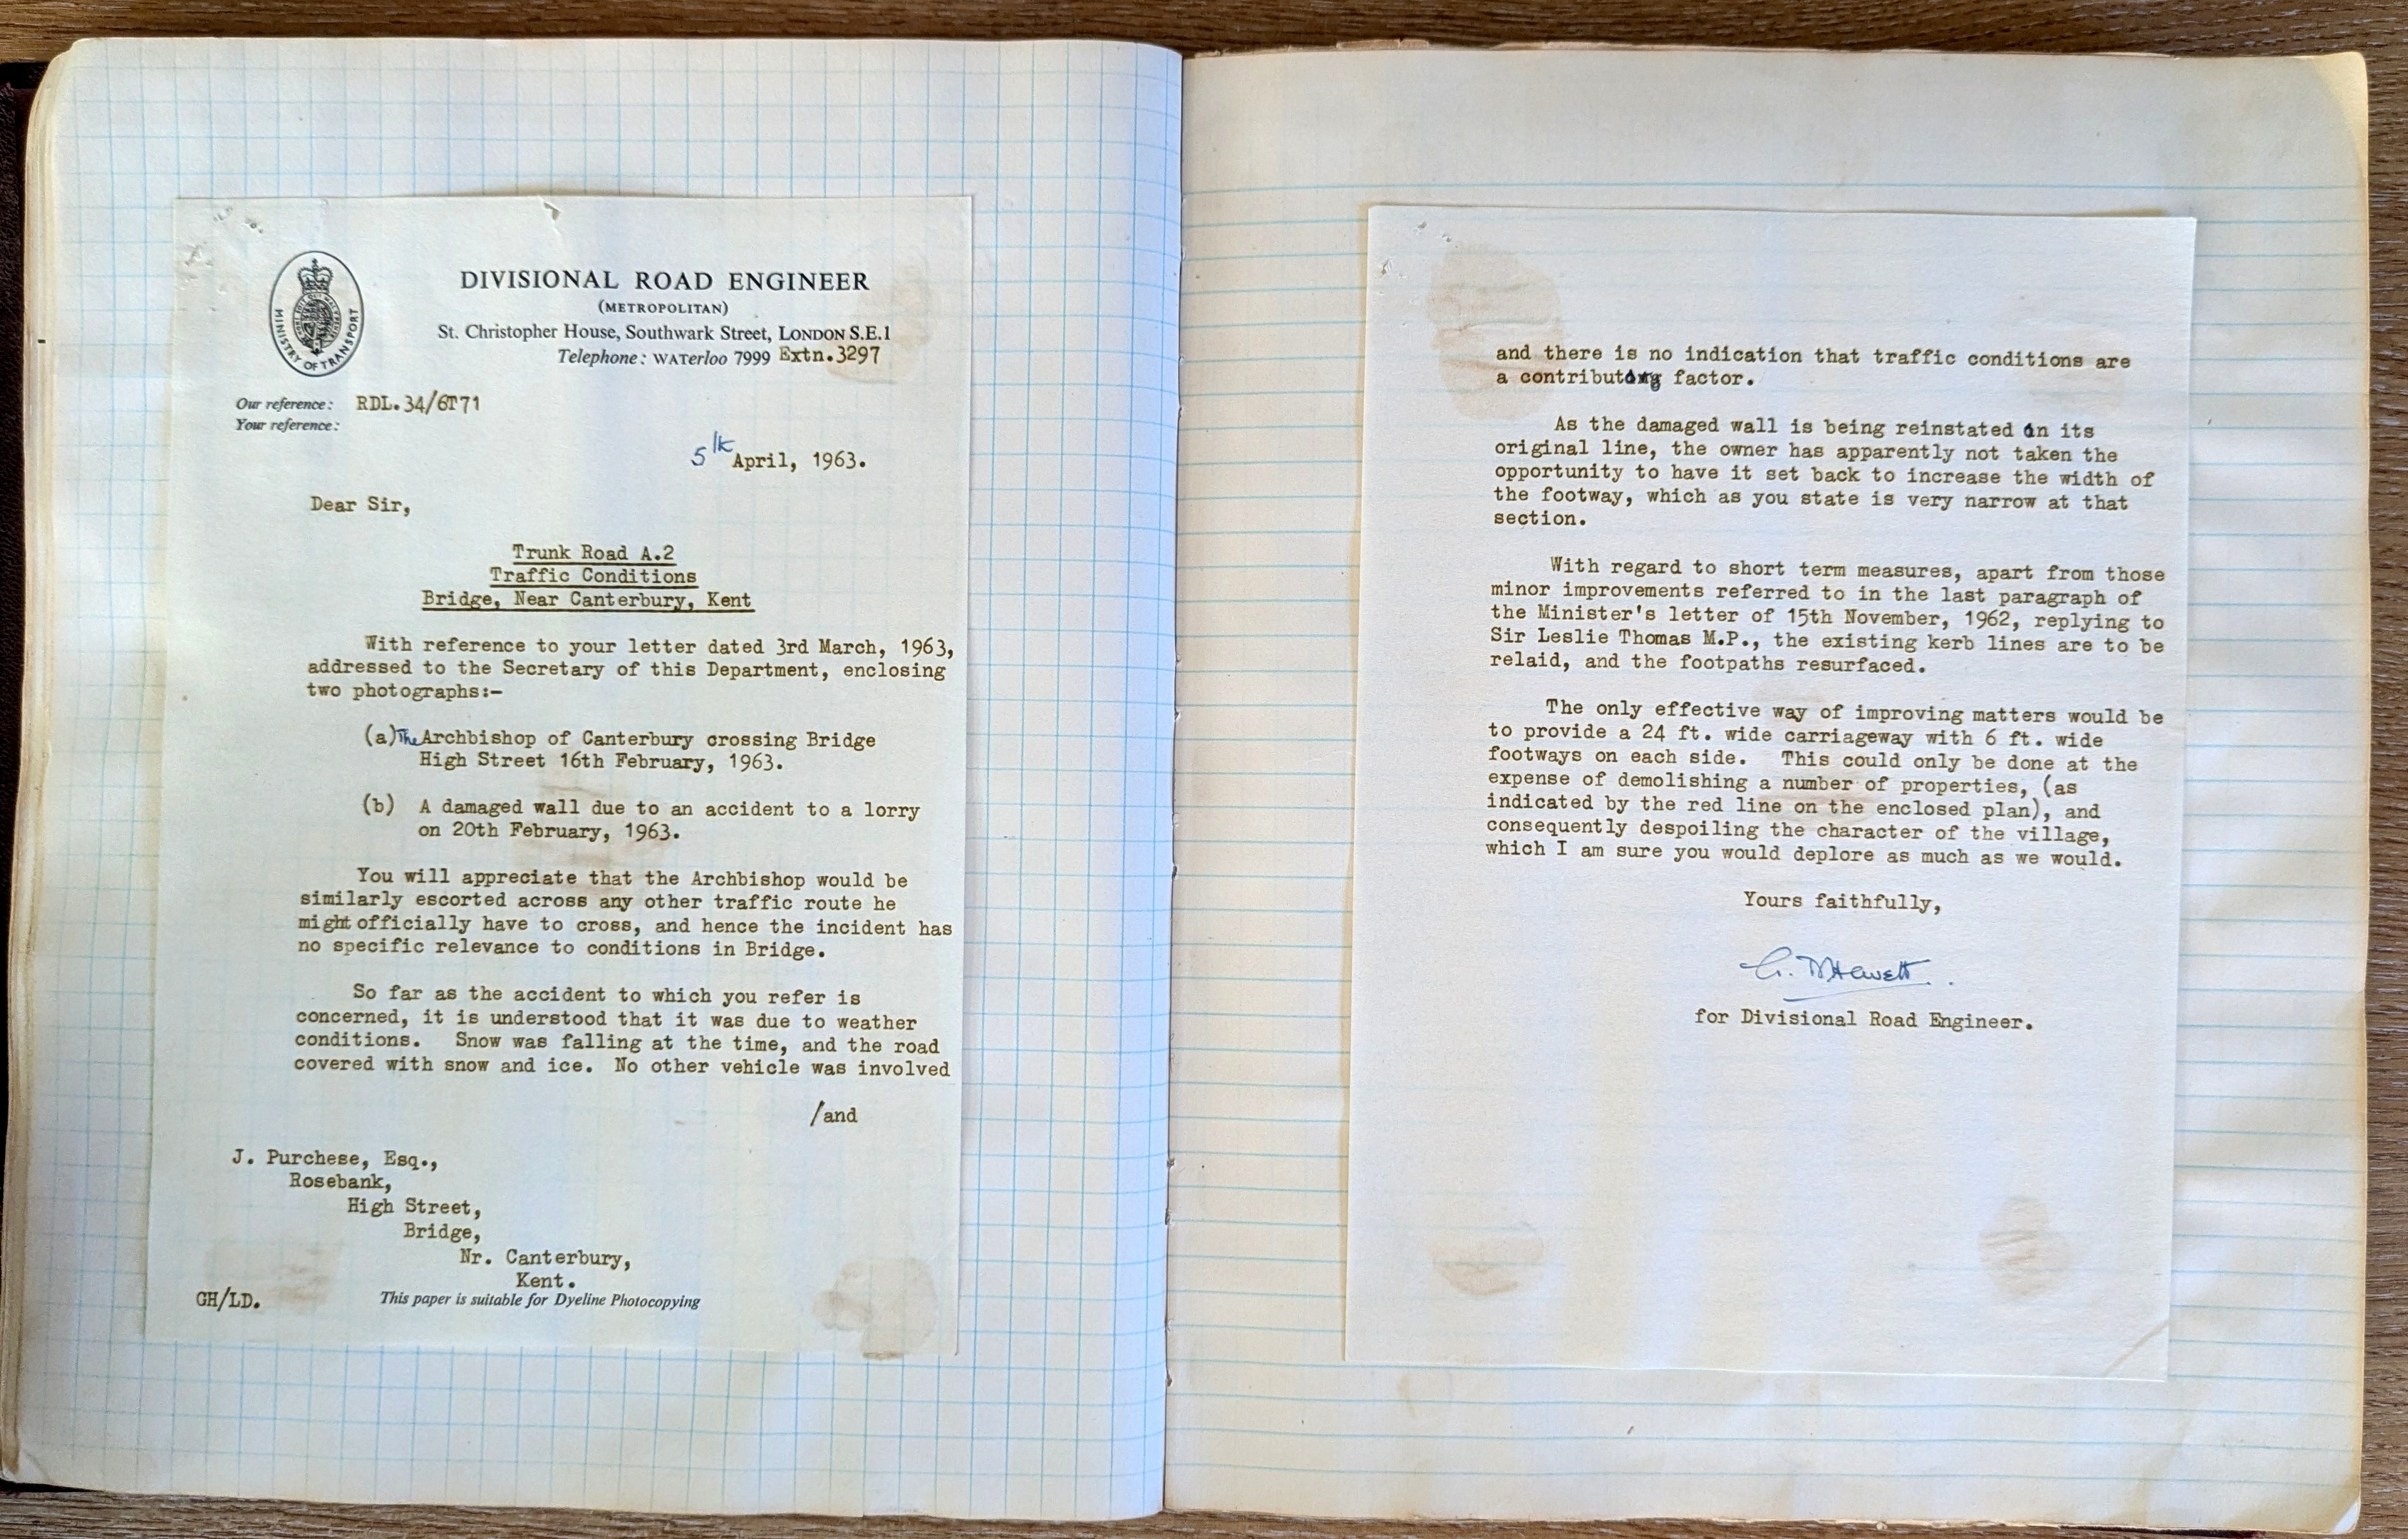 MINISTRY OF TRANSPORT
DIVISIONAL ROAD ENGINEER
(METROPOLITAN)
St. Christopher House, Southwark Street, LONDON S.E.1
Telephone: WATerloo 7999 Extn.3297
Our reference: RDL.34/6T71
Your reference:
5th April, 1963.
Dear Sir,
Trunk Road A.2
Traffic Conditions
Bridge, Near Canterbury, Kent
With reference to your letter dated 3rd March, 1963,
addressed to the Secretary of this Department, enclosing
two photographs:-
(a) The Archbishop of Canterbury crossing Bridge
High Street 16th February, 1963.
(b) A damaged wall due to an accident to a lorry
on 20th February, 1963.
You will appreciate that the Archbishop would be
similarly escorted across any other traffic route he
might officially have to cross, and hence the incident has
no specific relevance to conditions in Bridge.
So far as the accident to which you refer is
concerned, it is understood that it was due to weather
conditions. Snow was falling at the time, and the road
covered with snow and ice. No other vehicle was involved
/and
J. Purchese, Esq.,
Rosebank,
High Street,
Bridge,
Nr. Canterbury,
Kent.
GH/LD.
This paper is suitable for Dyeline Photocopying
and there is no indication that traffic conditions are
a contributing factor.
As the damaged wall is being reinstated on its
original line, the owner has apparently not taken the
opportunity to have it set back to increase the width of
the footway, which as you state is very narrow at that
section.
With regard to short term measures, apart from those
minor improvements referred to in the last paragraph of
the Minister's letter of 15th November, 1962, replying to
Sir Leslie Thomas M.P., the existing kerb lines are to be
relaid, and the footpaths resurfaced.
The only effective way of improving matters would be
to provide a 24 ft. wide carriageway with 6 ft. wide
footways on each side. This could only be done at the
expense of demolishing a number of properties, (as
indicated by the red line on the enclosed plan), and
consequently despoiling the character of the village,
which I am sure you would deplore as much as we would.
Yours faithfully,
for Divisional Road Engineer.